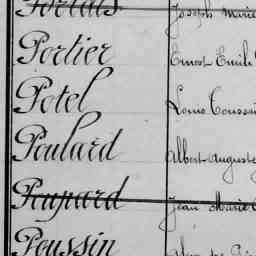 Portais Joseph Marie
Portier Ernest Emile
Potel Louis Toussaint
Poulard Albert Auguste
Poupard Jean Marie
Poussin